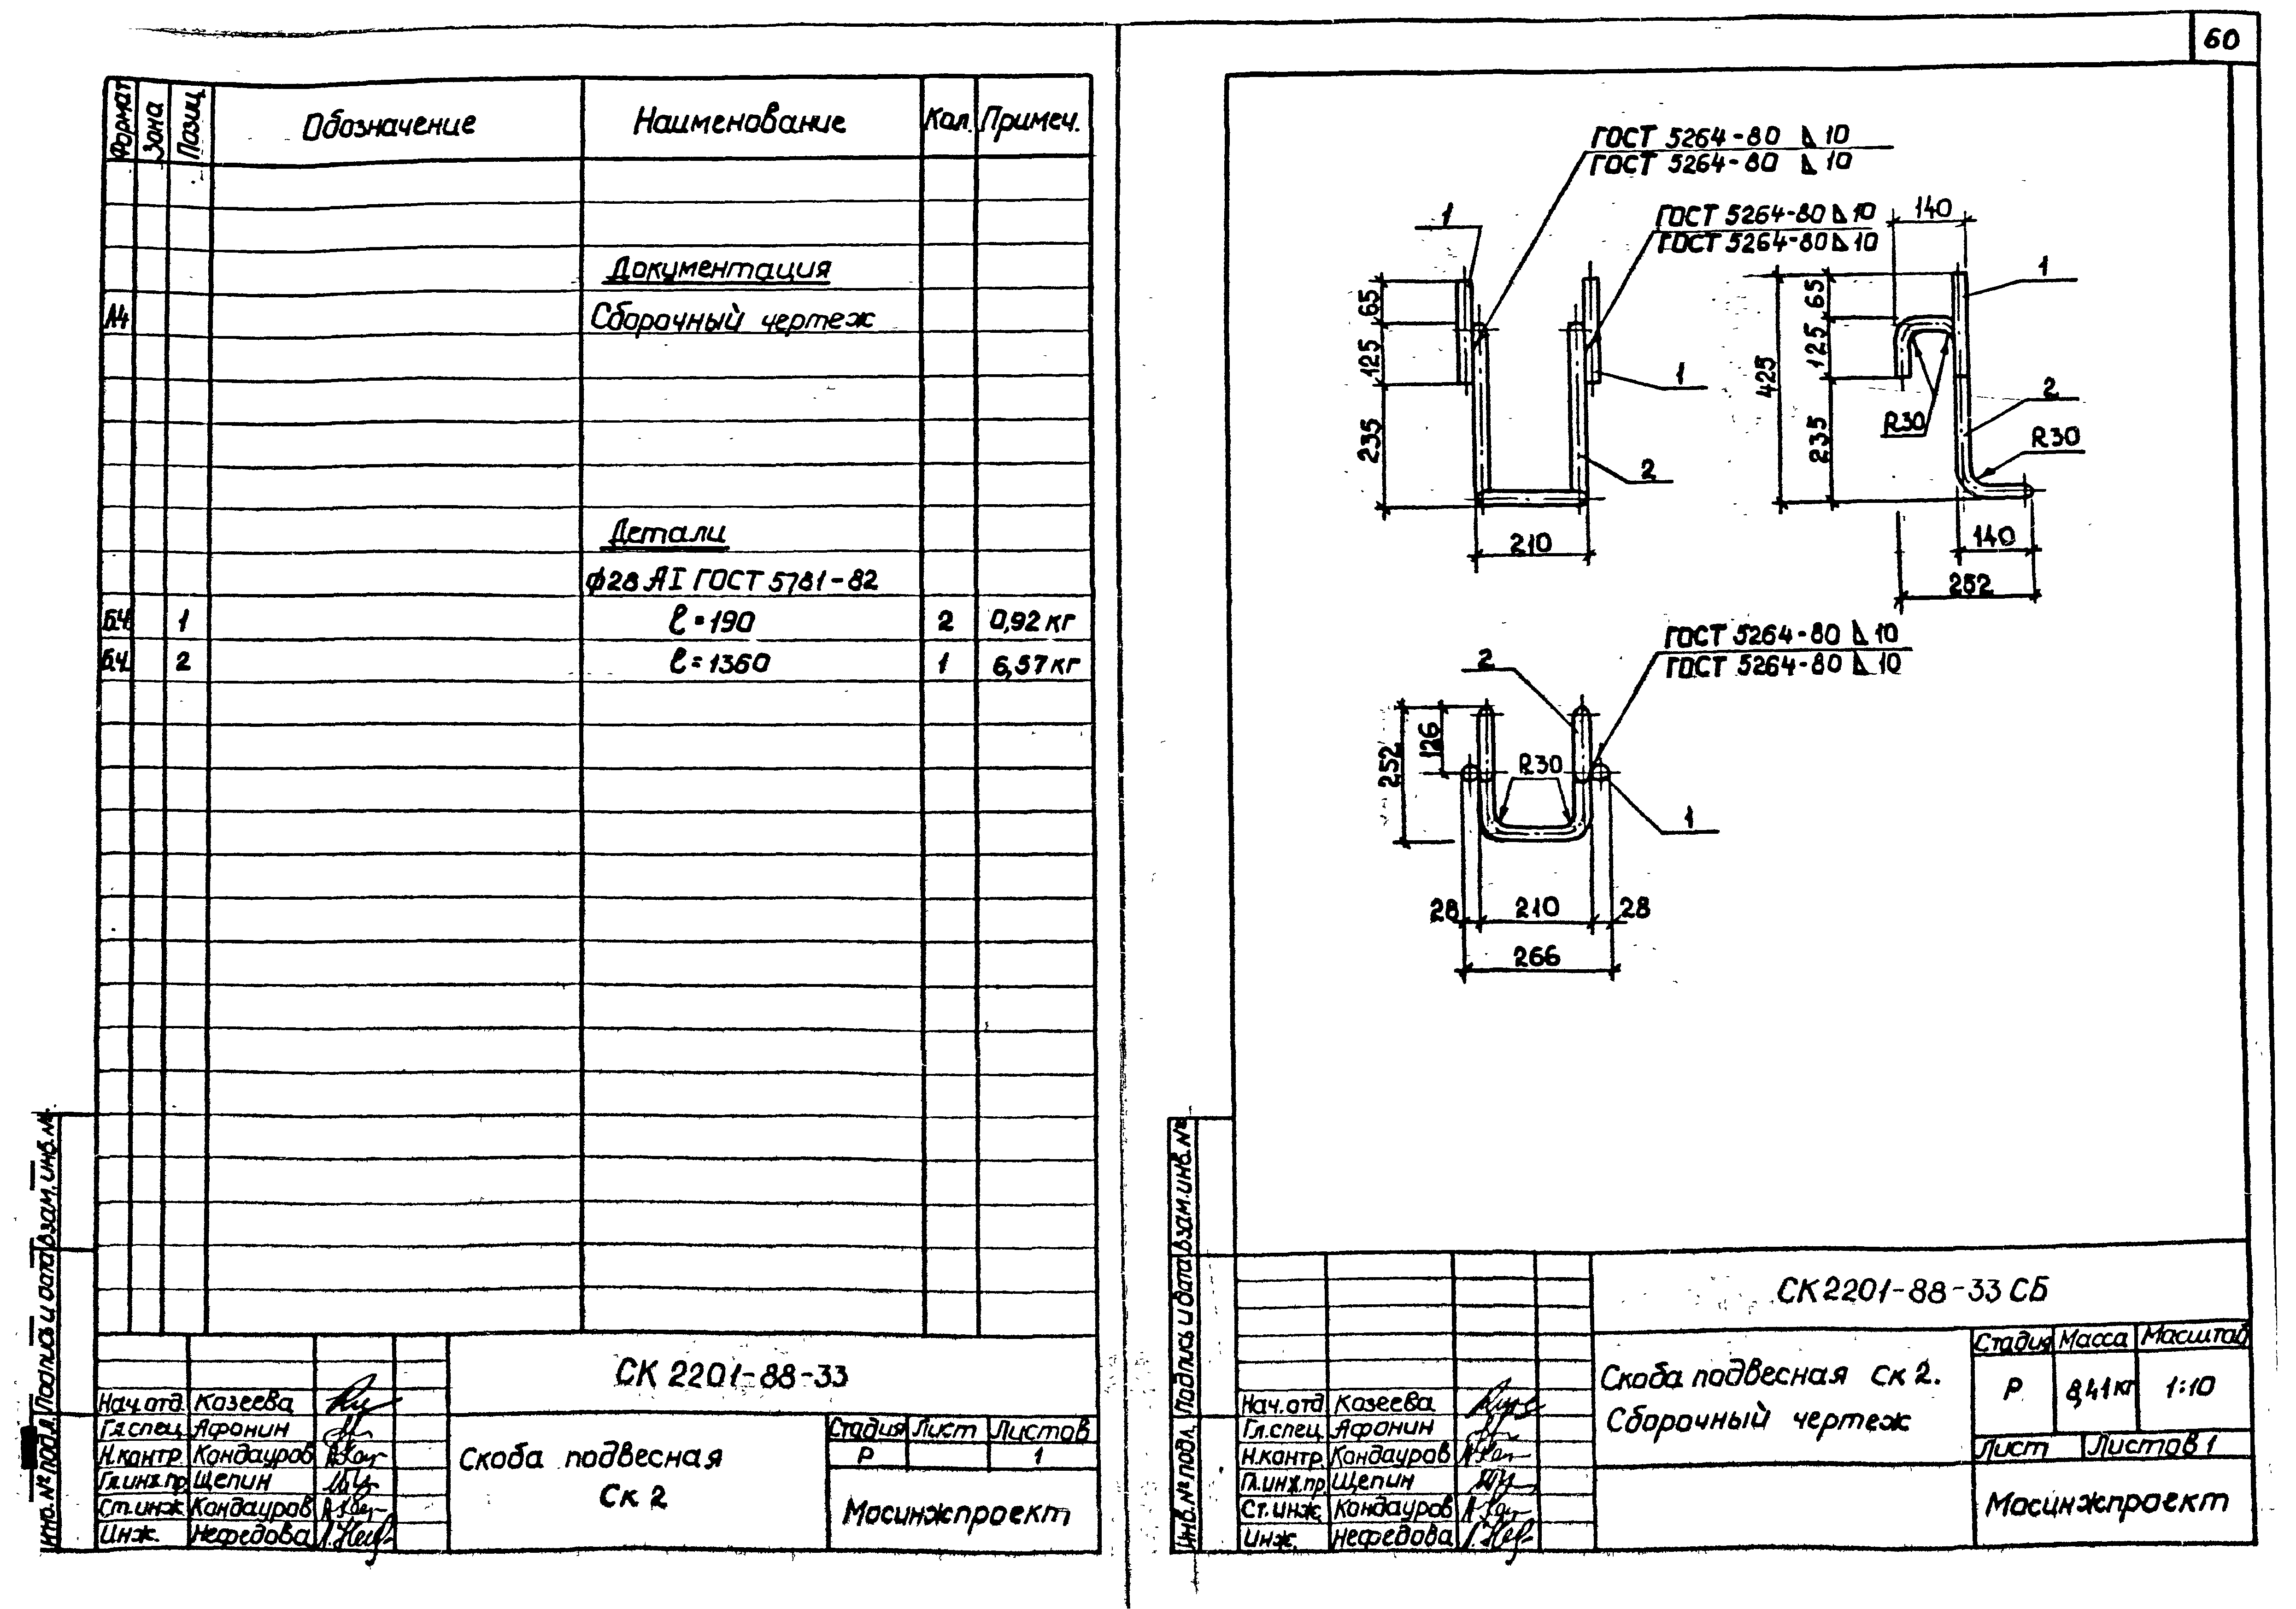 60
Формат Зона Позиц. Обозначение Наименование Кол. Примеч.
Документация
А4 Сборочный чертеж
Детали
ϕ28 АI ГОСТ 5781-82
Б.Ч. 1 ℓ=190 2 0,92 кг
Б.Ч. 2 ℓ=1360 1 6,57 кг
Инв.№ подл. Подпись и дата Взам.инв.№
СК 2201-88-33
Нач.отд. Козеева
Гл.спец. Афонин
Н.контр. Кондауров
Гл.инж.пр. Щепин
Ст.инж. Кондауров
Инж. Нефедова
Скоба подвесная
Ск 2
Стадия Лист Листов
Р 1
Мосинжпроект
ГОСТ 5264-80 ⊿ 10
ГОСТ 5264-80 ⊿ 10
ГОСТ 5264-80 ⊿ 10
ГОСТ 5264-80 ⊿ 10
1
65
125
235
1
2
210
140
1
425
65
125
235
R30
2
R30
140
252
ГОСТ 5264-80 ⊿ 10
ГОСТ 5264-80 ⊿ 10
2
252
126
R30
1
28 210 28
266
Инв.№ подл. Подпись и дата Взам.инв.№
СК 2201-88-33 СБ
Нач.отд. Козеева
Гл.спец. Афонин
Н.контр. Кондауров
Гл.инж.пр. Щепин
Ст.инж. Кондауров
Инж. Нефедова
Скоба подвесная Ск 2.
Сборочный чертеж
Стадия Масса Масштаб
Р 8,41кг 1:10
Лист Листов 1
Мосинжпроект